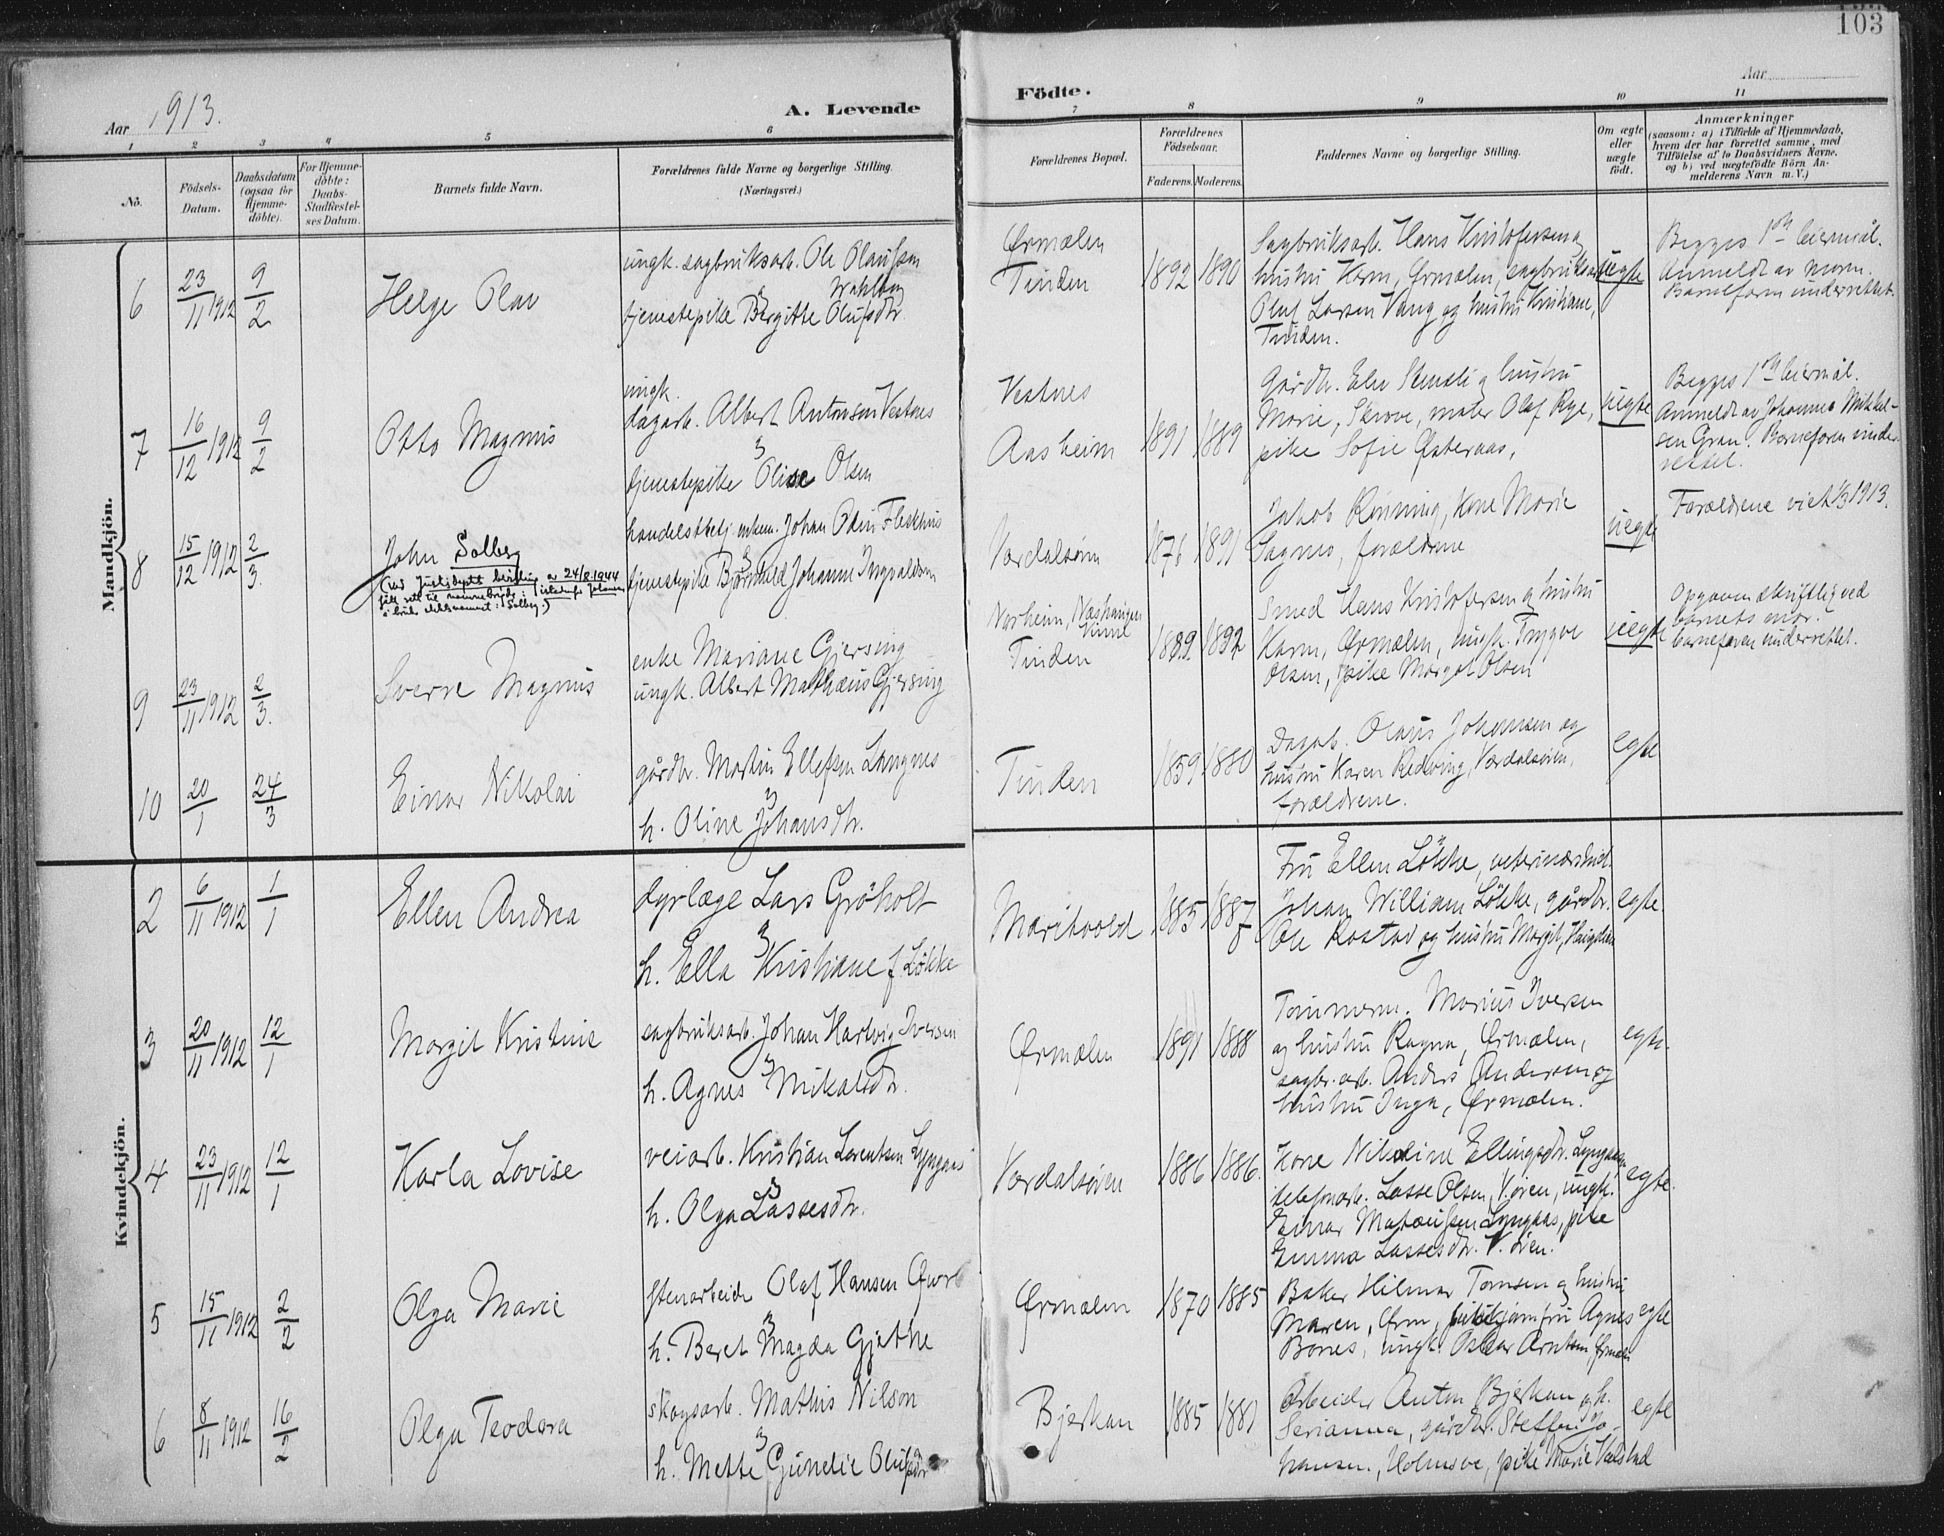 103
Aar 1913.
A. Levende
Födte.
Aar
1 2 3 4 5 6 7 8 9 10 11
No.
Födsels-
Datum.
Daabsdatum
(ogsaa for
Hjemme-
döbte).
For Hjemme-
döbte:
Daabs-
Stadfæstel-
ses Datum.
Barnets fulde Navn.
Forældrenes fulde Navne og borgerlige Stilling.
(Næringsvei.)
Forældrenes Bopæl.
Forældrenes
Födselsaar.
Faderens. Moderens.
Faddernes Navne og borgerlige Stilling.
Om ægte
eller
uægte
födt.
Anmærkninger
(saasom: a) i Tilfælde af Hjemmedaab,
hvem der har forrettet samme, med
Tilföielse af to Daabsvidners Navne.
og b) ved uægtefödte Börn An-
melderens Navn m. V.)
Mandkjön.
6 23/11 1912 9/2 Helge Olav
ungk. sagbruksarb. Ole Olaussen
tjenestepike Bergitte Olufsdtr
Ørmælen
Tinden
1892 1890
Sagbruksarb. Hans Kristofersen og
hustru Karn, Ørmælen, sagbruksarb.
Oluf Larsen Vang og hustru Kristiane,
Tinden.
uegte
Begges 1ste leiermål.
Anmeldt av moren.
Barnefaren underrettet.
7 16/12 1912 9/2 Otto Magnus
ungk.
dagarb. Albert Antonsen Vestnes
tjenestepike Olise Olsen
Vestnes
Aasheim
1891 1889
Gårdbr. Elev Stensli og hustru
Marie, Skrove, maler Olaf Rye,
pike Sofie Østeraas,
uegte
Begges 1ste leiermål.
Anmeldt av Johannes Mikkel-
sen Gran. Barnefaren under-
rettet.
8 15/12 1912 2/3. John Solberg
(Ved Justisdepts bevilling av 24/8 1944
fått rett til navnebytte: istedenfor Johansen
å bruke slektsnavnet: Solberg.)
handelsbetj. enkem. Johan Odin Fleskhus
tjenestepike Bjørnhild Johanne Ingvaldsen
Værdalsøren
1876 1891
Jakob Rønning, kone Marie
Sagnes, forældrene
uegte
Forældrene viet 1/3 1913.
9 23/11 1912 2/3. Sverre Magnus
enke Mariane Gjersing
ungk. Albert Mathæus Gjersing
Norheim,
Tinden
1889 1892
Smed Hans Kristofersen og hustru
Karn, Ørmælen, ungk. Trygve
Olsen, pike Margot Olsen
uegte
Opgaven skriftlig ved
barnets mor.
barnefaren underrettet.
10 20/1 24/3 Einar Nikolai
gårdbr. Martin Ellefsen Langnes
h. Oline Johansdtr.
Tinden
1859 1880
Dagarb. Olaus Johansen og
hustru Karen Redving, Værdalsøren,
forældrene.
egte
Kvindekjön.
2 6/11 1912 1/1 Ellen Andrea
dyrlæge Lars Grøholt
h. Ella Kristiane f. Løkke
Maritvold
1885 1887
Fru Ellen Løkke, veterinærstud.
Johan William Løkke, gårdbr.
Ole Rostad og hustru Margit,
egte.
3 20/11 1912 12/1 Margit Kristine
sagbruksarb. Johan Hartvig Iversen
h. Agnes Mikalsdtr.
Ørmælen
1891 1888
Tømmerm. Marius Iversen
og hustru Ragna, Ørmælen,
sagbr.arb. Anders Andersen og
hustru Inga, Ørmælen.
egte.
4 23/11 1912 12/1 Karla Lovise
veiarb. Kristian Lorentsen Lyngaas
h. Olga Lassesdtr.
Værdalsøren
1886 1886.
Kone Nikoline Ellingsdtr. Lyngaas,
telefonarb. Lasse Olsen, V.ören, ungk.
Einar Mateussen Lyngaas, pike
Emma Lassesdtr. V. ören.
egte.
5 15/11 1912 2/2 Olga Marie
Stenarbeider Olaf Hansen
h. Beret Magda Gjethe
Ørmælen
1870 1885
Baker Hilmar Tomsen og hustru
Maren, Ørm, jomfru Agnes
Bones, ungk. Oskar Arntsen Ørmælen
egte
6 8/11 1912 16/2 Olga Teodora
skogsarb. Mathis Nilson
h. Mette Gunelie Olufsdtr
Bjerkan
1885 1881
Arbeider Anton Bjerkan og h.
Serianna, gårdbr. Steffen Jo-
hansen, Holmsve, pike Marie Valstad
egte